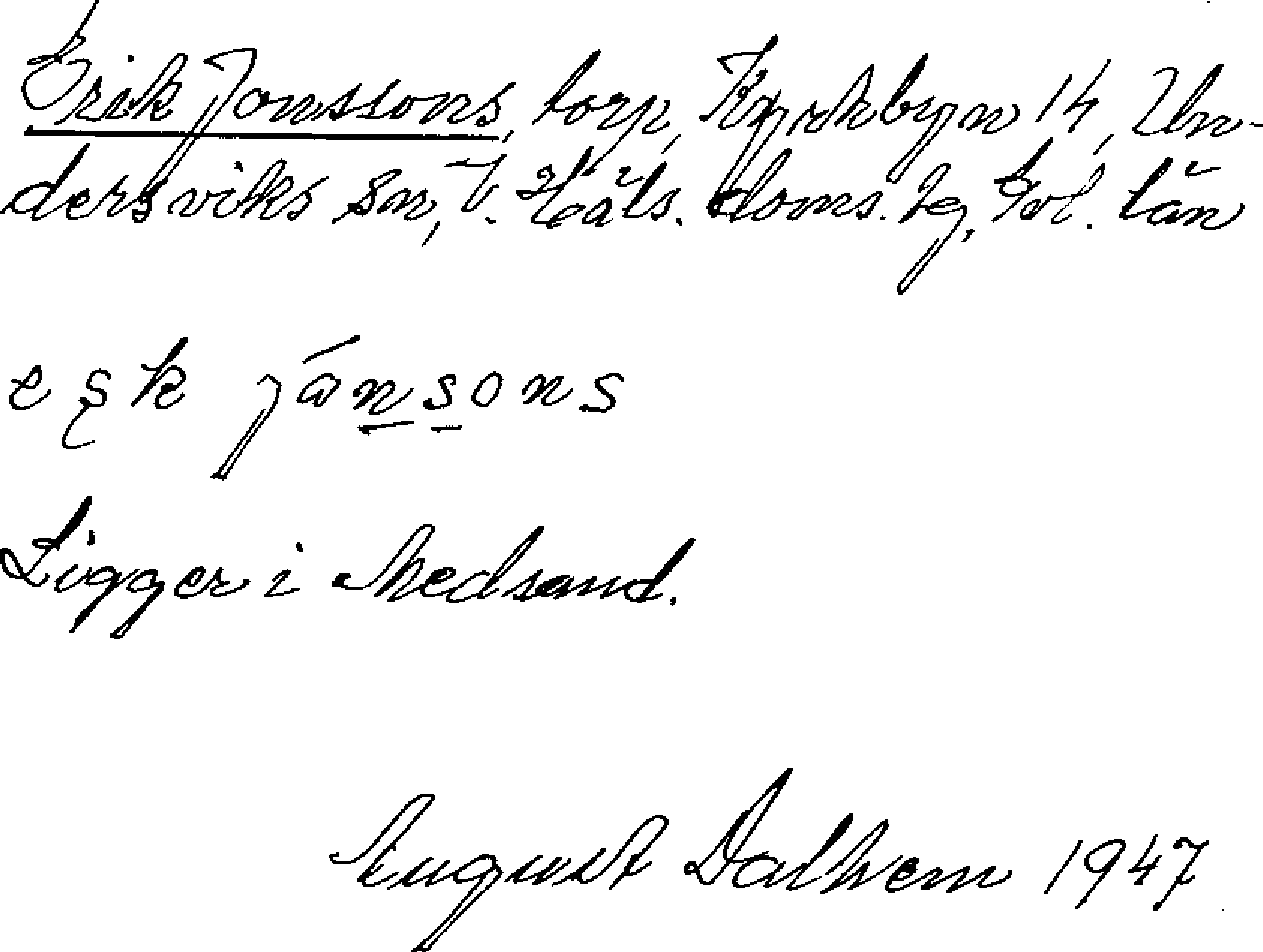 Erik Jonssons, torp, Kyrkbyn 14, Un-
dersviks sn, V. Häls. doms. hg, Gvl. län
jánsons
Ligger i Medsand.
August Dalhem 1947